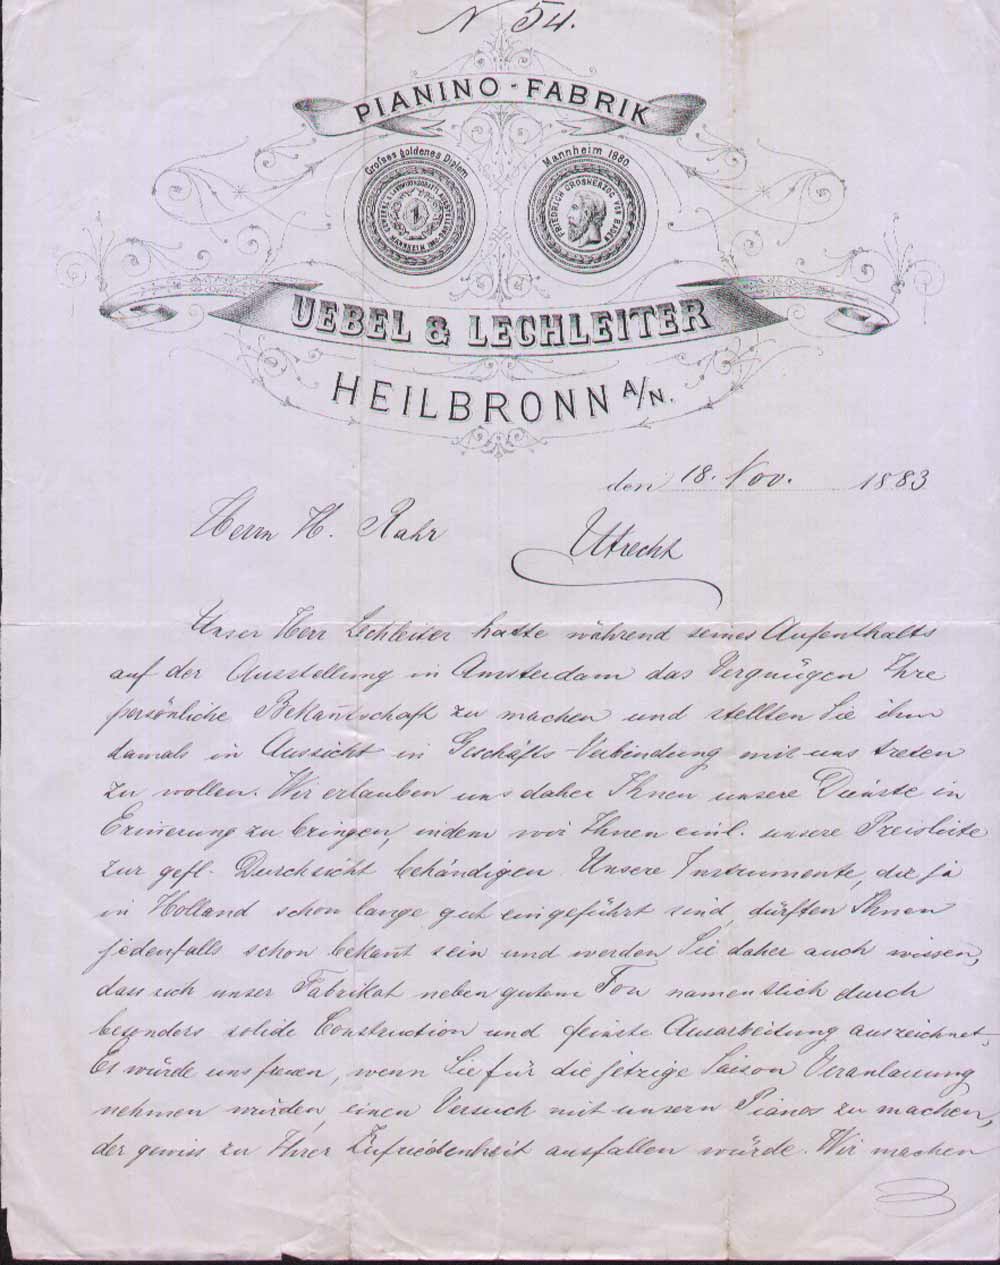 N 54.
PIANINO-FABRIK
Großes goldenes Diplom
Mannheim 1880
1
MANNHEIM 1880
FRIEDRICH GROSHERZOG VON BADEN
UEBEL & LECHLEITER
HEILBRONN A/N.
den 18. Nov. 1883
Herrn H. Rahr
Utrecht
Unser Herr Lechleiter hatte während seines Aufenthalts
auf der Ausstellung in Amsterdam das Vergnügen Ihre
persönliche Bekan̄tschaft zu machen und stellten Sie ihm
damals in Aussicht in Geschäfts-Verbindung mit uns treten
zu wollen. Wir erlauben uns daher Ihnen unsere Dienste in
Erin̄erung zu bringen, indem wir Ihnen einl. unsere Preisliste
zur gefl. Durchsicht behändigen. Unsere Instrumente, die ja
in Holland schon lange gut eingeführt sind, dürften Ihnen
jedenfalls schon bekan̄t sein und werden Sie daher auch wissen,
dass sich unser Fabrikat neben gutem Ton namentlich durch
besonders solide Construction und feinste Ausarbeitung auszeichnet.
Es würde uns freuen, wenn Sie für die jetzige Saison Veranlassung
nehmen würden, einen Versuch mit unsern Pianos zu machen,
der gewiss zu Ihrer Zufriedenheit ausfallen würde. Wir machen